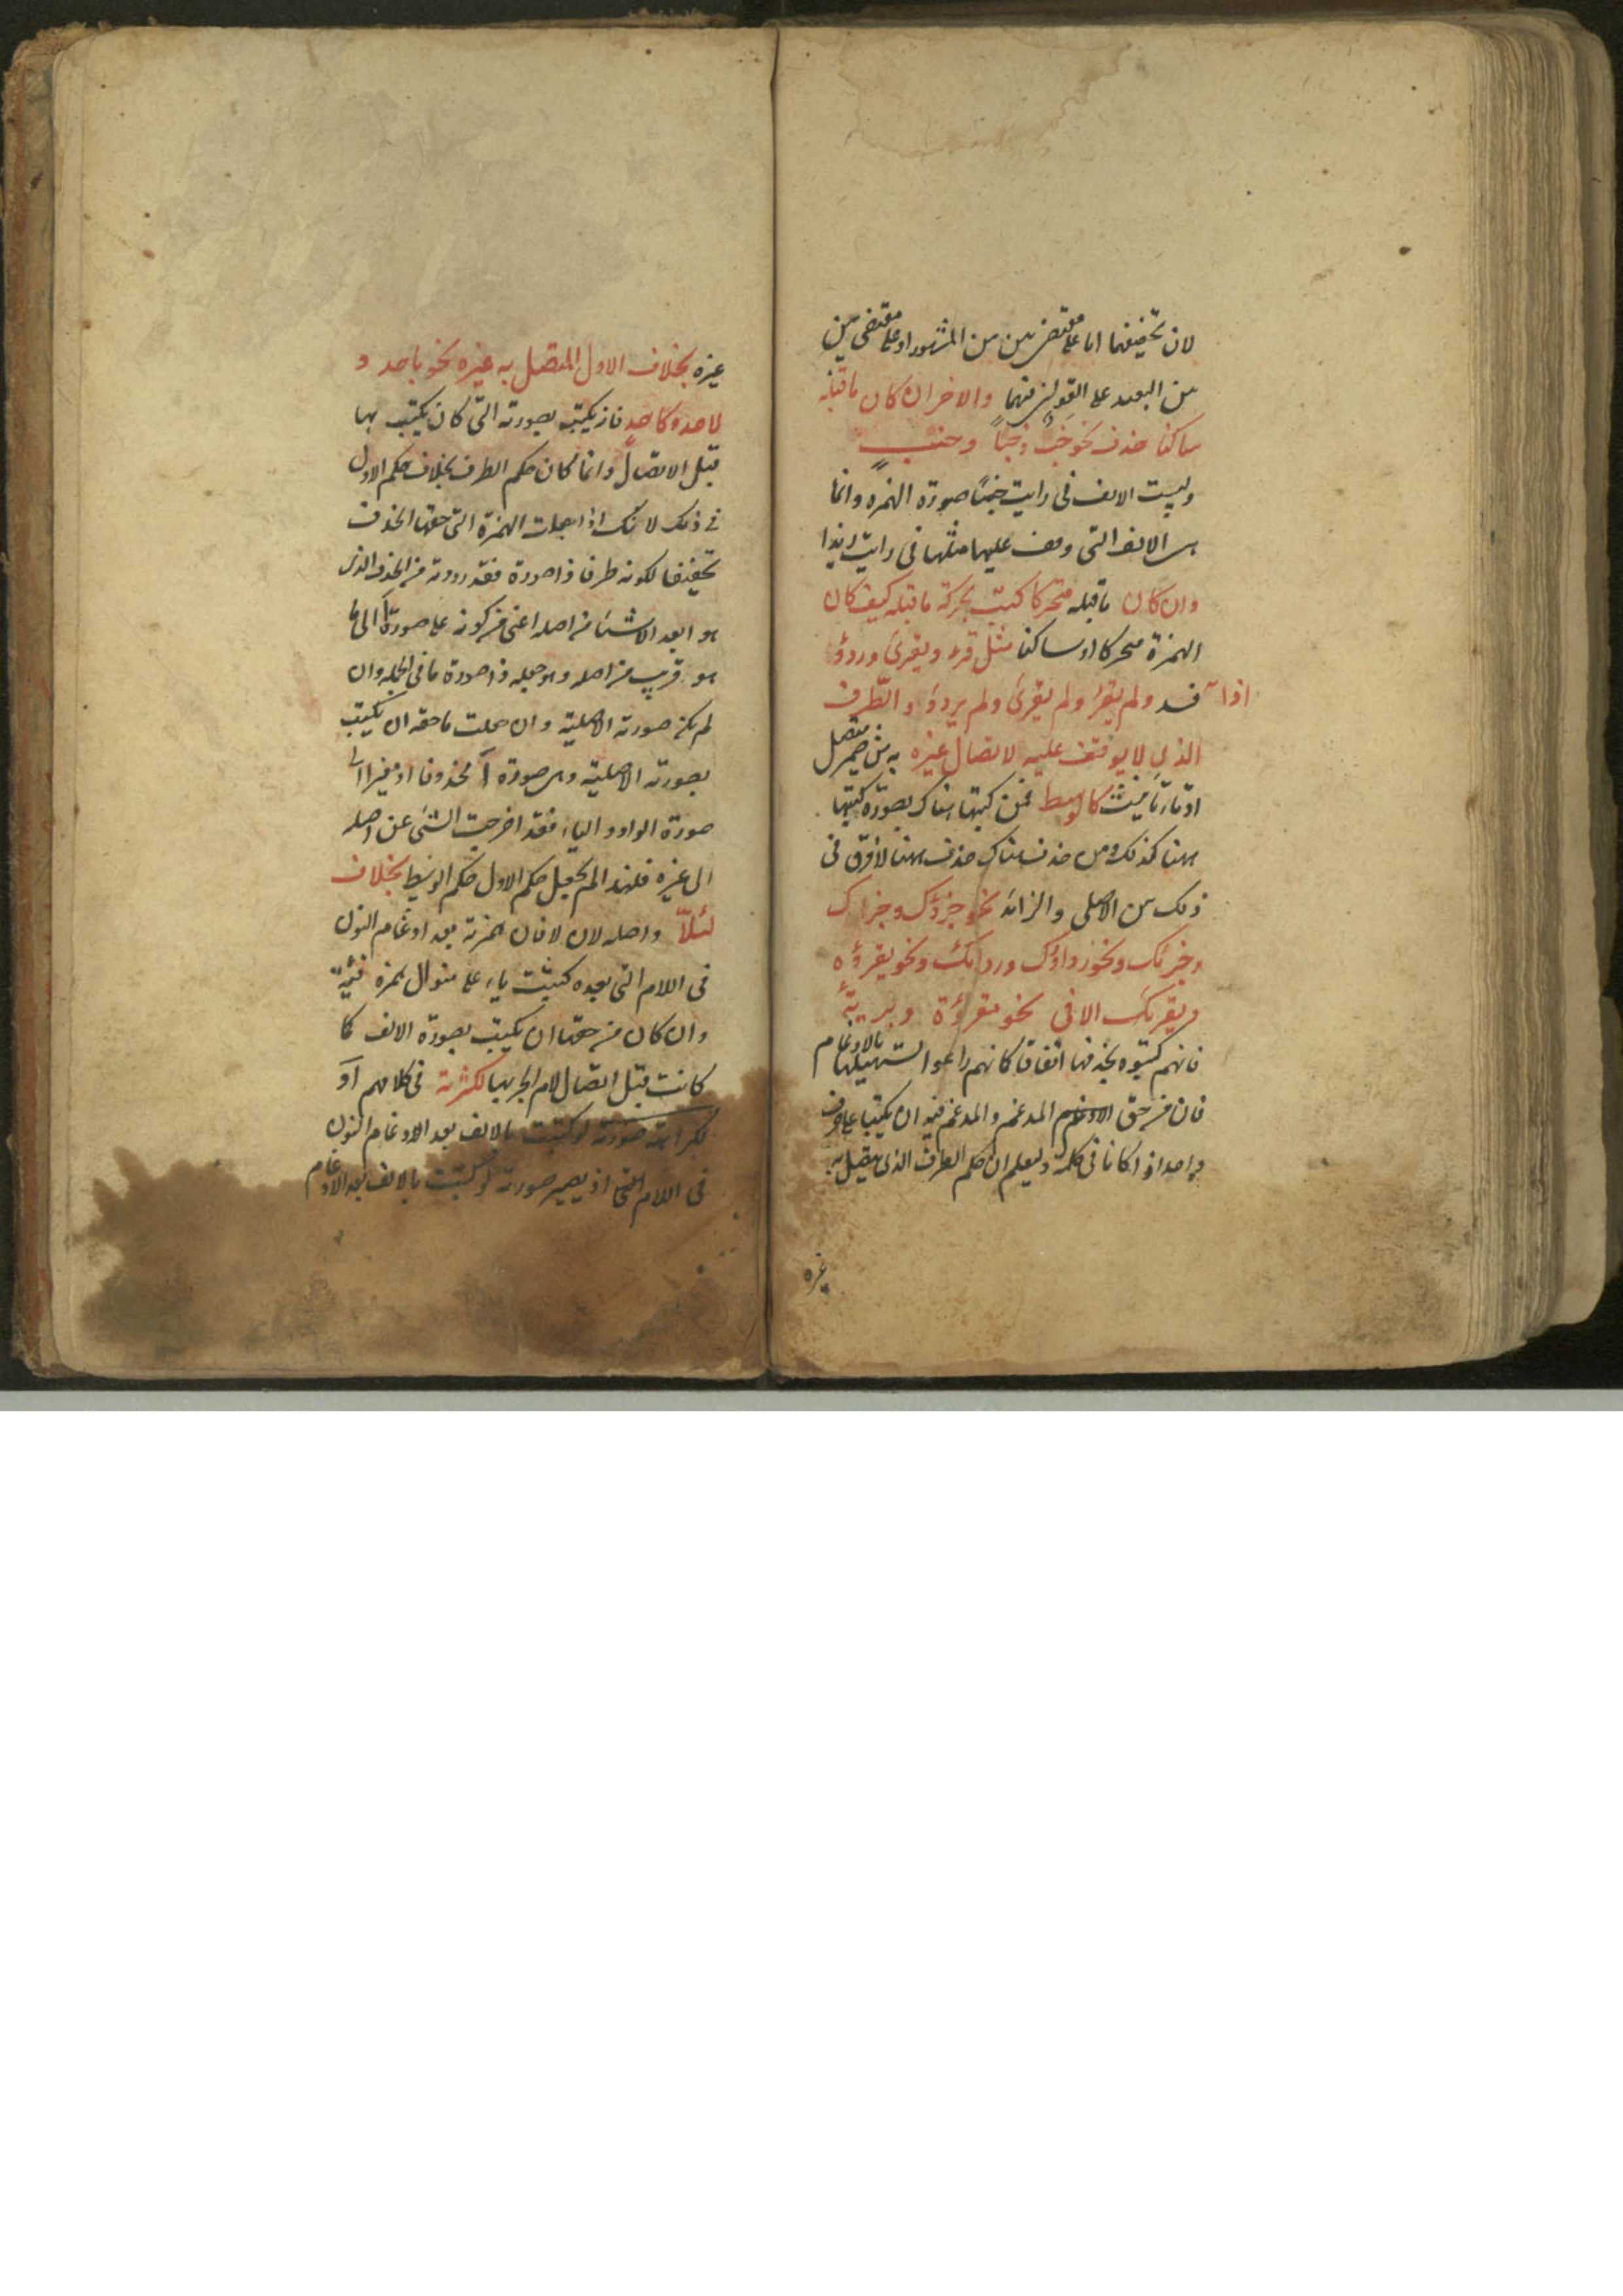 لان تخفيفهما اما على مقتضى بين بين المشهور او على مقتضى بين
بين البعيد على القولين فيهما والاخر ان كان ما قبله
ساكنا حذف نحو خبٌ وخبًا وخبٍ
وليست الالف فى رايت خبًا صورة الهمزه وانما
هى الالف التى وقف عليها مثلها فى رايت زيدا
وان كان ما قبله متحركا كتبت بحركة ما قبله كيف كان
الهمزة متحركا او ساكنا مثل قرء ويقرئ وردؤ
اذا فسد ولم يقرأ ولم يقرئ ولم يردؤ والطرف
الذى لا يوقف عليه لاتصال غيره به من ضمير متصل
او تاء تانيث كالوسط فمن كتبها هناك بصورة كتبها
ههنا كذلك ومن حذف هناك حذف ههنا لافرق فى
ذلك بين الاصلى والزائد نحو جزؤك وجزاك
وجزئك ونحو رداؤك وردائك ونحو يقرؤه
ويقرئك الا فى نحو مقرؤة وبريئة
فانهم كتبوه بحذفها اتفاقا كانهم راعوا تسهيلها بالادغام
فان من حق المدغم والمدغم فيه ان يكتبا على حرف
واحد اذا كانا فى كلمة وليعلم ان حكم الطرف الذى يتصل به
غيره
غيره بخلاف الاول المتصل به غيره نحو باحد و
لاحد وكاحد فانه يكتب بصورته التى كان يكتب بها
قبل الاتصال وانما كان حكم الطرف بخلاف حكم الاول
فى ذلك لانك اذا جعلت الهمزة التى حقها الحذف
تخفيفا لكونه طرفا ذا صورة فقد رددته من الحذف الذى
هو ابعد الاشياء من اصله اعنى من كونه على صورة آ الى ما
هو قريب من اصله وهو جعله ذا صورة ما فى الجملة وان
لم يكن صورته الاصلية وان جعلت ما حقه ان يكتب
بصورته الاصلية وهى صورة آ محذوفا او مغيرا الى
صورة الواو والياء فقد اخرجت الشئ عن اصله
الى غيره فلهذا لم يجعل حكم الاول حكم الوسط بخلاف
لئلا واصله لان لا فان همزته بعد ادغام النون
فى اللام التى بعده كتبت ياء على منوال همزة فئة
وان كان من حقها ان يكتب بصورة الالف كما
كانت قبل اتصال لام الجر بها لكثرته فى كلامهم او
لكراهة صورته لو كتبت بالالف بعد الادغام النون
فى اللام التى اذ يصير صورته لو كتبت بالالف بعد الادغام